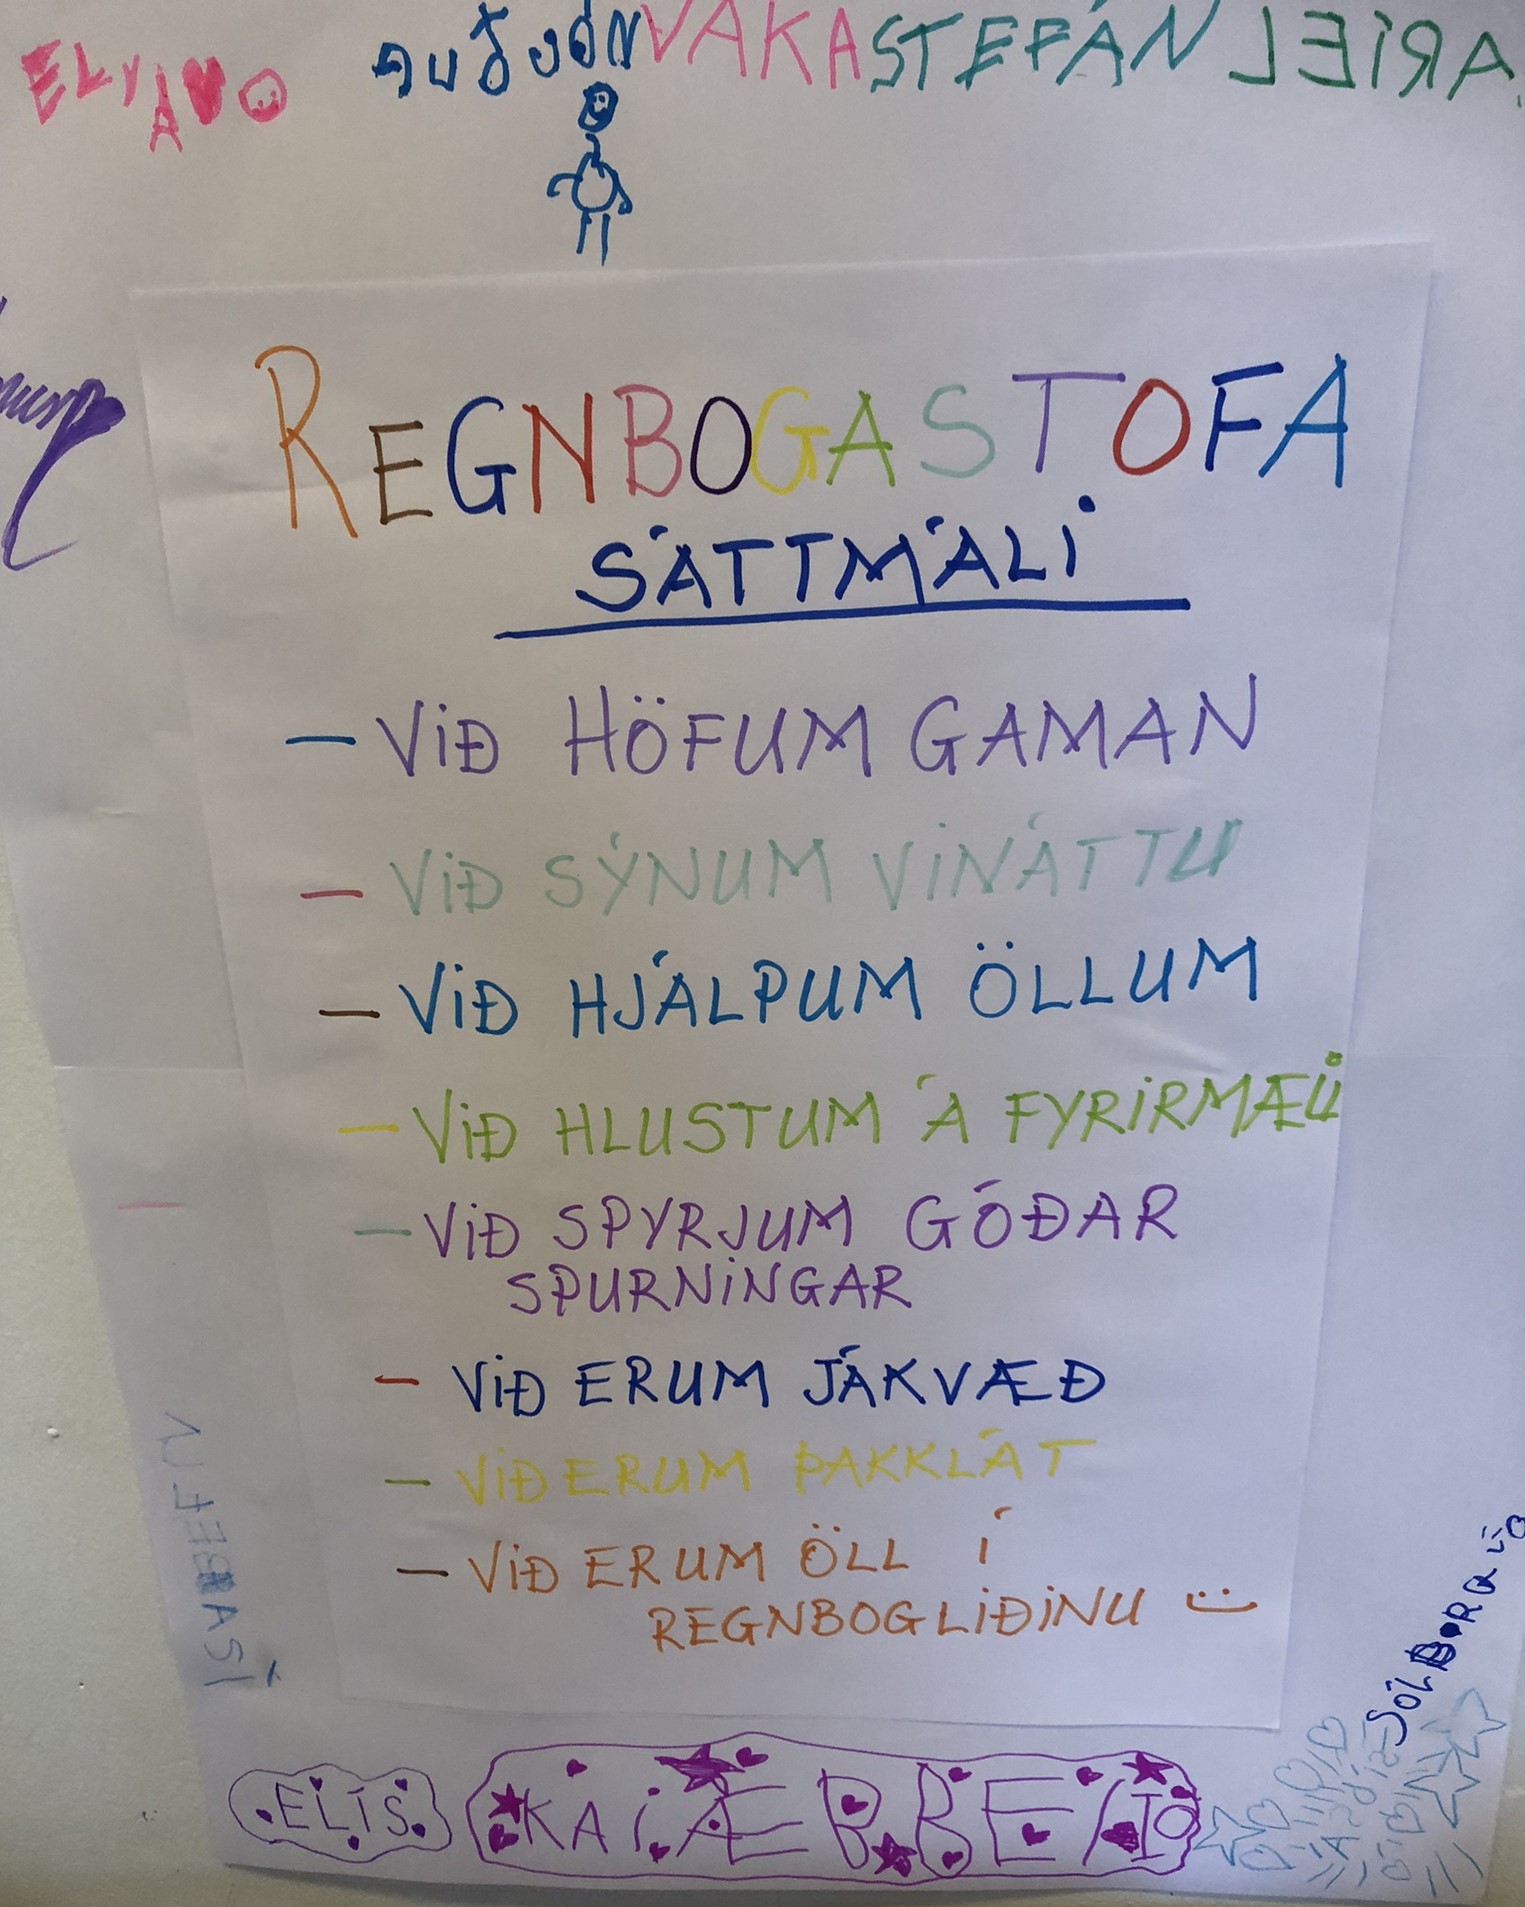 VAKA STEFÁN ARÍEL
REGNBOGASTOFA
SÁTTMÁLI
- VIÐ HÖFUM GAMAN
- VIÐ SÝNUM VINÁTTU
- VIÐ HJÁLPUM ÖLLUM
- VIÐ HLUSTUM Á FYRIRMÆLI
- VIÐ SPYRJUM GÓÐAR
SPURNINGAR
- VIÐ ERUM JÁKVÆÐ
- VIÐ ERUM ÞAKKLÁT
- VIÐ ERUM ÖLL Í
REGNBOGLIÐINU
ÍSABELLA
SÓLBORG
ELÍS